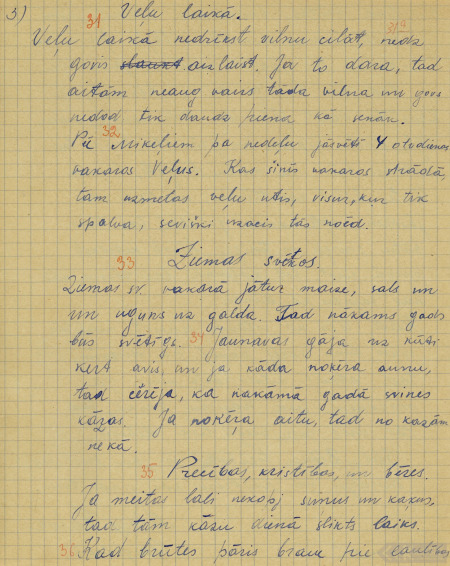 3) Veļu laikā.
31
Veļu laikā nedrīkst vilnu cilāt, nedz
govis slaukt aizlaist. Ja to dara, tad
aitām neaug vairs tāda vilna un govs
nedod tik daudz piena kā senāk.
32
Pēc Miķeļiem pa nedēļu jāsvētī 4 otrdienas
vakaros Veļus. Kas šinīs vakaros strādā,
tam uzmetas veļu utis, visur, kur tik
spalva, sevišķi uzacis tās noēd.
33 Ziemas svētkos.
Ziemas sv. vakarā jātur maize, sāls un
un uguns uz galda. Tad nākams gads
būs svētīgs. 34 Jaunavas gāja uz kūti
ķert avis, un ja kāda noķēra aunu,
tad cerēja, ka nākāmā gadā svinēs
kāzas. Ja noķēra aitu, tad no kazām
nekā.
35 Precības, kristības, un bēres.
Ja meitas labi nekopj suņus un kaķus,
tad tām kāzu dienā slikts laiks.
36 Kad brūtes pāris brauc pie laulības